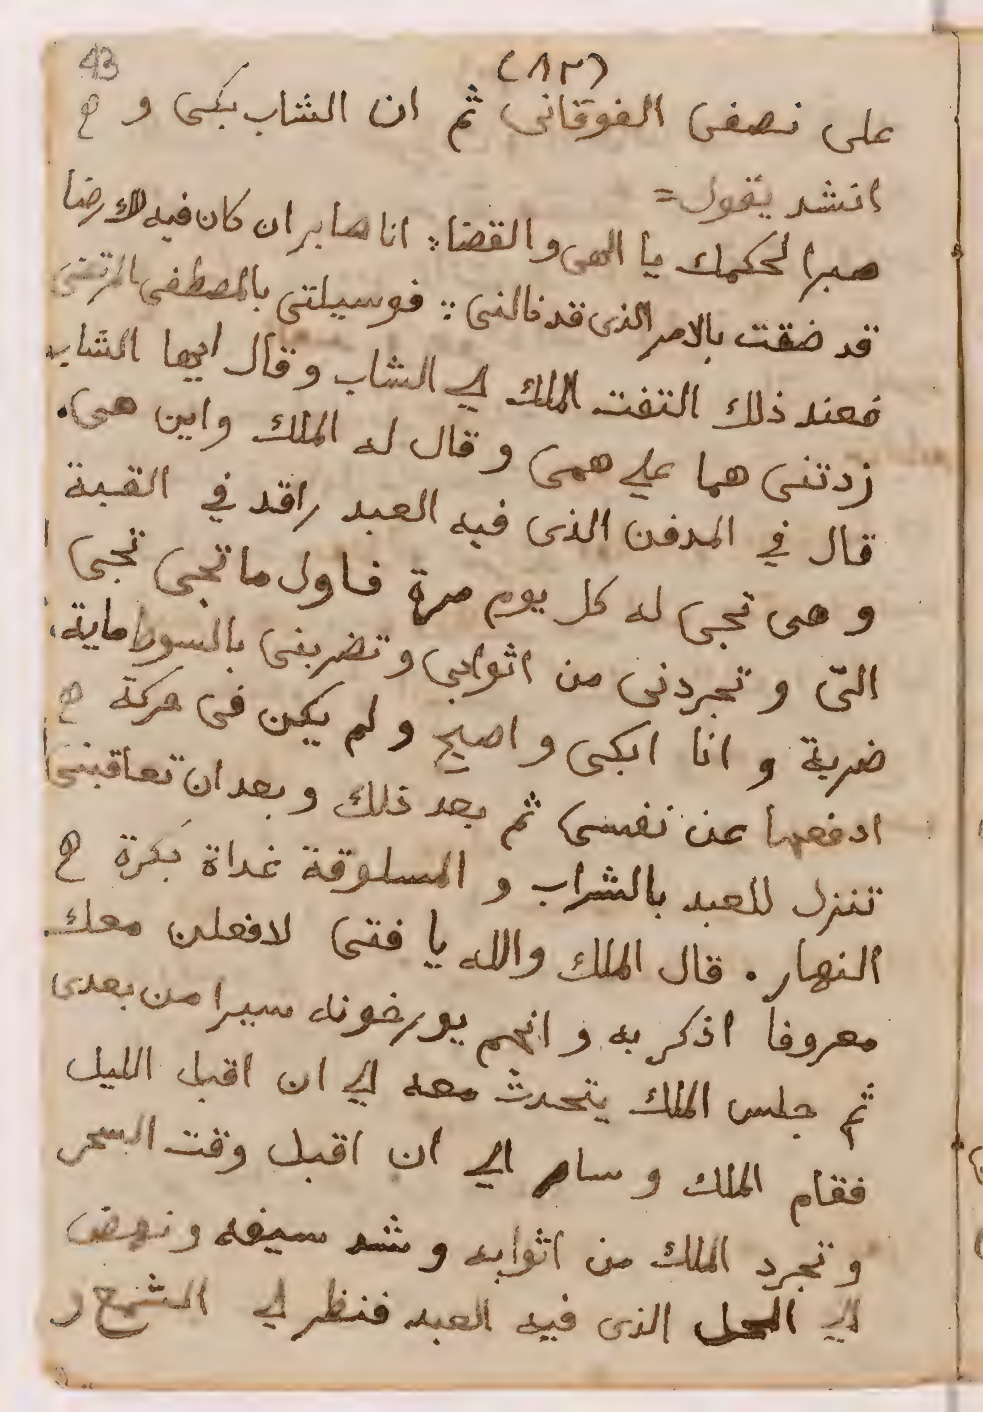 43
(٨٣)
على نصفى الفوقانى ثم ان الشاب بكى و ھ
انشد يقول =
صبرا لحكمك يا الهى والقضا :· انا صابر ان كان فيه لك رضا
قد ضقت بالامر الذى قد نالنى :: فوسيلتى بالمصطفى المرتضى
فعند ذلك التفت الملك الي الشاب وقال ايها الشاب
زدتنى هما علي همى و قال له الملك واين هى .
قال في المدفن الذى فيه العبد راقد في القبة
و هى تجى له كل يوم مرة فاول ما تجى تجى ا
الىّ و تجردنى من اثوابى و تضربنى بالسوط ماية
ضربة و انا ابكى و اصيح و لم يكن فى حركة ھ
ادفعها عن نفسى ثم بعد ذلك و بعد ان تعاقبنى
تنزل للعبد بالشراب و المسلوقة غداة بَكرة ھ
النهار . قال الملك والله يا فتى لافعلن معك
معروفا اذكر به و انهم يورخونه سيرا من بعدى
ثم جلس الملك يتحدث معه الي ان اقبل الليل
فقام الملك و سار الي ان اقبل وقت السحر
و تجرد الملك من اثوابه و شد سيفه و نهض
الي المحل الذى فيه العبد فنظر الي الشمع ر